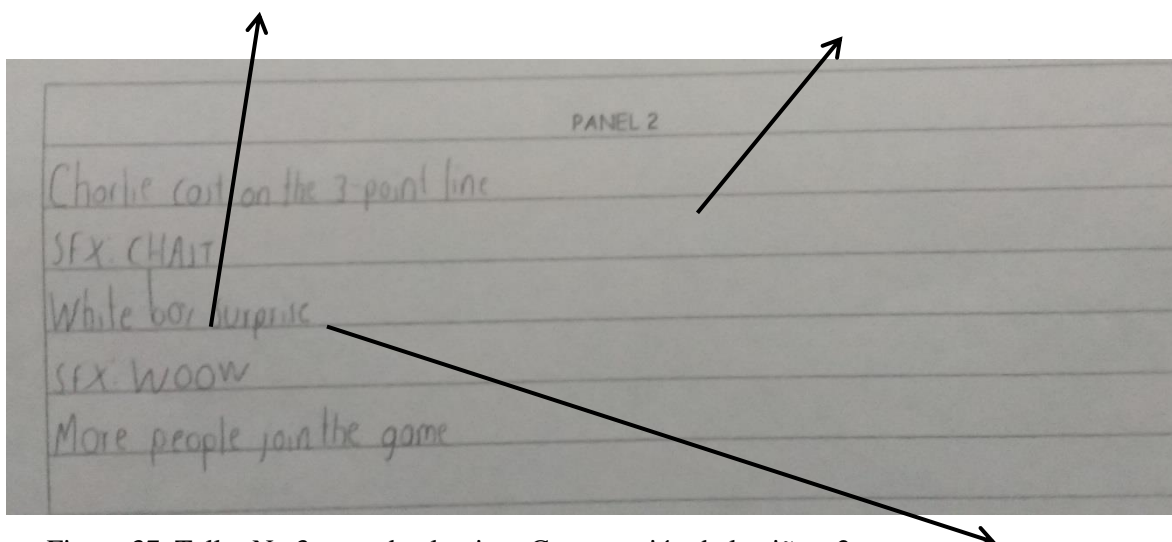 PANEL 2
Charlie cast on the 3-point line
SFX: CHAIT
White boy surprise
SFX: WOOW
More people join the game